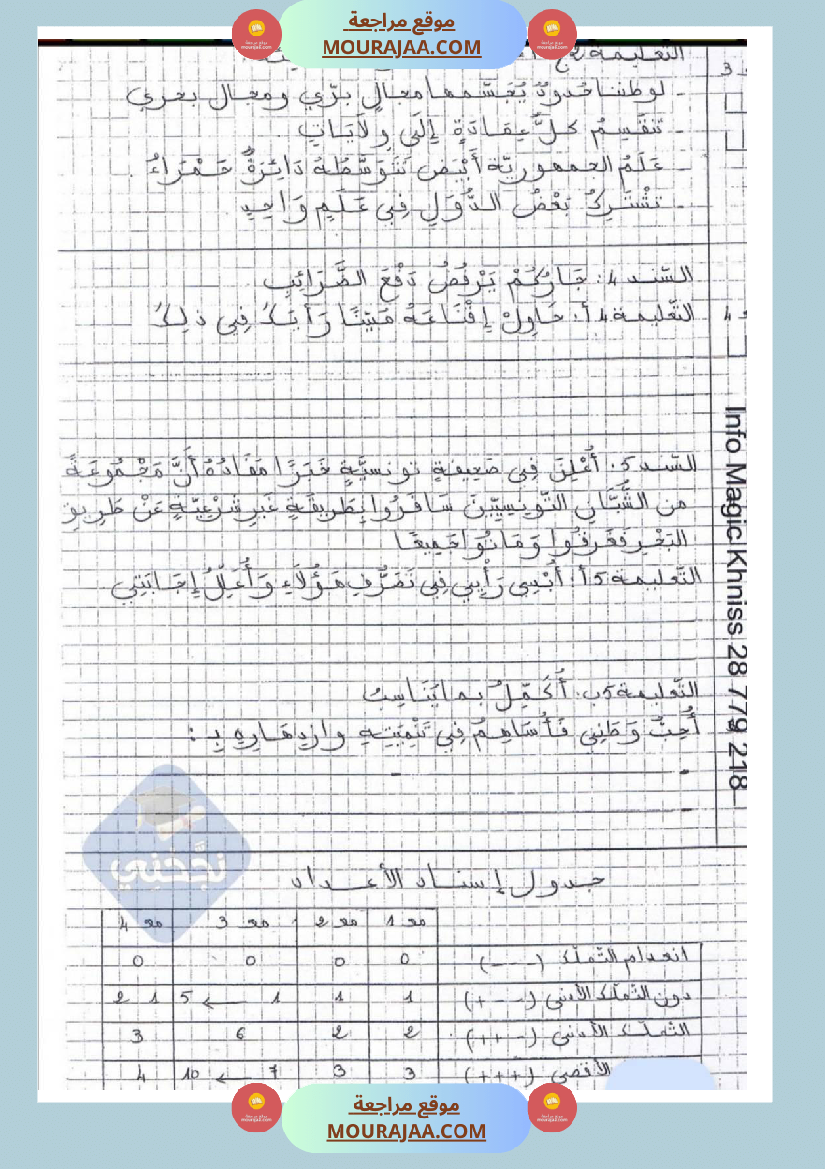 موقع مراجعة
MOURAJAA.COM
- لوطننا حُدُودٌ يُجَسِّمها مجالٍ برّي ومجال بحري
- تَنْقَسِمُ كلُّ عِمَادَةٍ إِلَى وِلَايَاتٍ
- عَلَمُ الجمهوريّة أَبْيَض تَتَوَسَّطُهُ دَائِرَةٌ حَمْرَاءُ.
- تشْتَرِكُ بَعْضُ الدُّوَلِ فِي عَلَمٍ وَاحِدٍ
السّند 4: جَارُكُمْ يَرْفُضُ دَفْعَ الضَّرَائِبِ
التّعليمة 4 أ: حَاوِلْ إِقْنَاعَهُ مُبَيِّنًا رَأْيَكَ فِي ذلِكَ
السّند 5: أُعْلِنَ فِي صَحِيفَةٍ تونسيَّةٍ خَبَرًا مَفَادُهُ أَنَّ مَجْمُوعَةً
من الشُّبَّانِ التّونِسِيِّينَ سَافَرُوا بِطَرِيقَةٍ غَيرِ شَرْعِيَّةٍ عَنْ طَرِيقِ
البَحْرِ فَغَرِقُوا وَمَاتُوا جَمِيعًا
التّعليمة 5 أ: أُبْدِي رَأْيِي فِي تَصَرُّفِ هَؤُلَاءِ وَأُعَلِّلُ إِجَابَتِي
التّعليمة 5 ب: أُكَمِّلُ بما يَتَنَاسبُ
أُحِبُّ وَطَنِي فَأُسَاهِمُ فِي تَنْمِيَتِهِ وازدهَارِهِ بِـ:
Info Magic Khniss 28 779 218
نجّحني
جدول إسناد الأعداد
مع 1 مع 2 مع 3 مع 4
انعدام التّملّك (---) 0 0 0 0
دون التّملّك الأدنى (--+) 1 1 1 ← 5 1 2
التّملّك الأدنى (-++) 2 2 6 3
الأقصى (+++) 3 3 7 ← 10 4
موقع مراجعة
MOURAJAA.COM